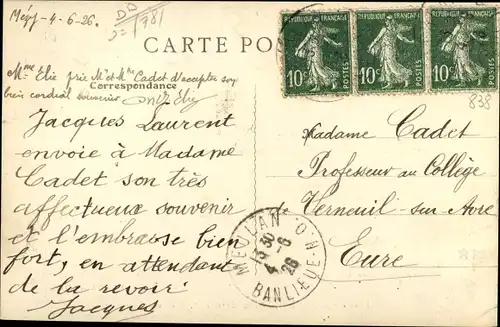 Mézy-4-6.26.
CARTE POS
Mme Elie prie Mr et Mme Cadet d'accepter son
bien cordial souvenir
Correspondance
Jacques Laurent
envoie à Madame
Cadet son très
affectueux souvenir
et l'embrasse bien
fort, en attendant
de la revoir.
Jacques
REPUBLIQUE FRANÇAISE
10c POSTES
REPUBLIQUE FRANÇAISE
10c POSTES
REPUBLIQUE FRANÇAISE
10c POSTES
838
Madame Cadet
Professeur au Collège
de Verneuil-sur-Avre
Eure
MEULAN
30
4-6
26
BANLIEUE